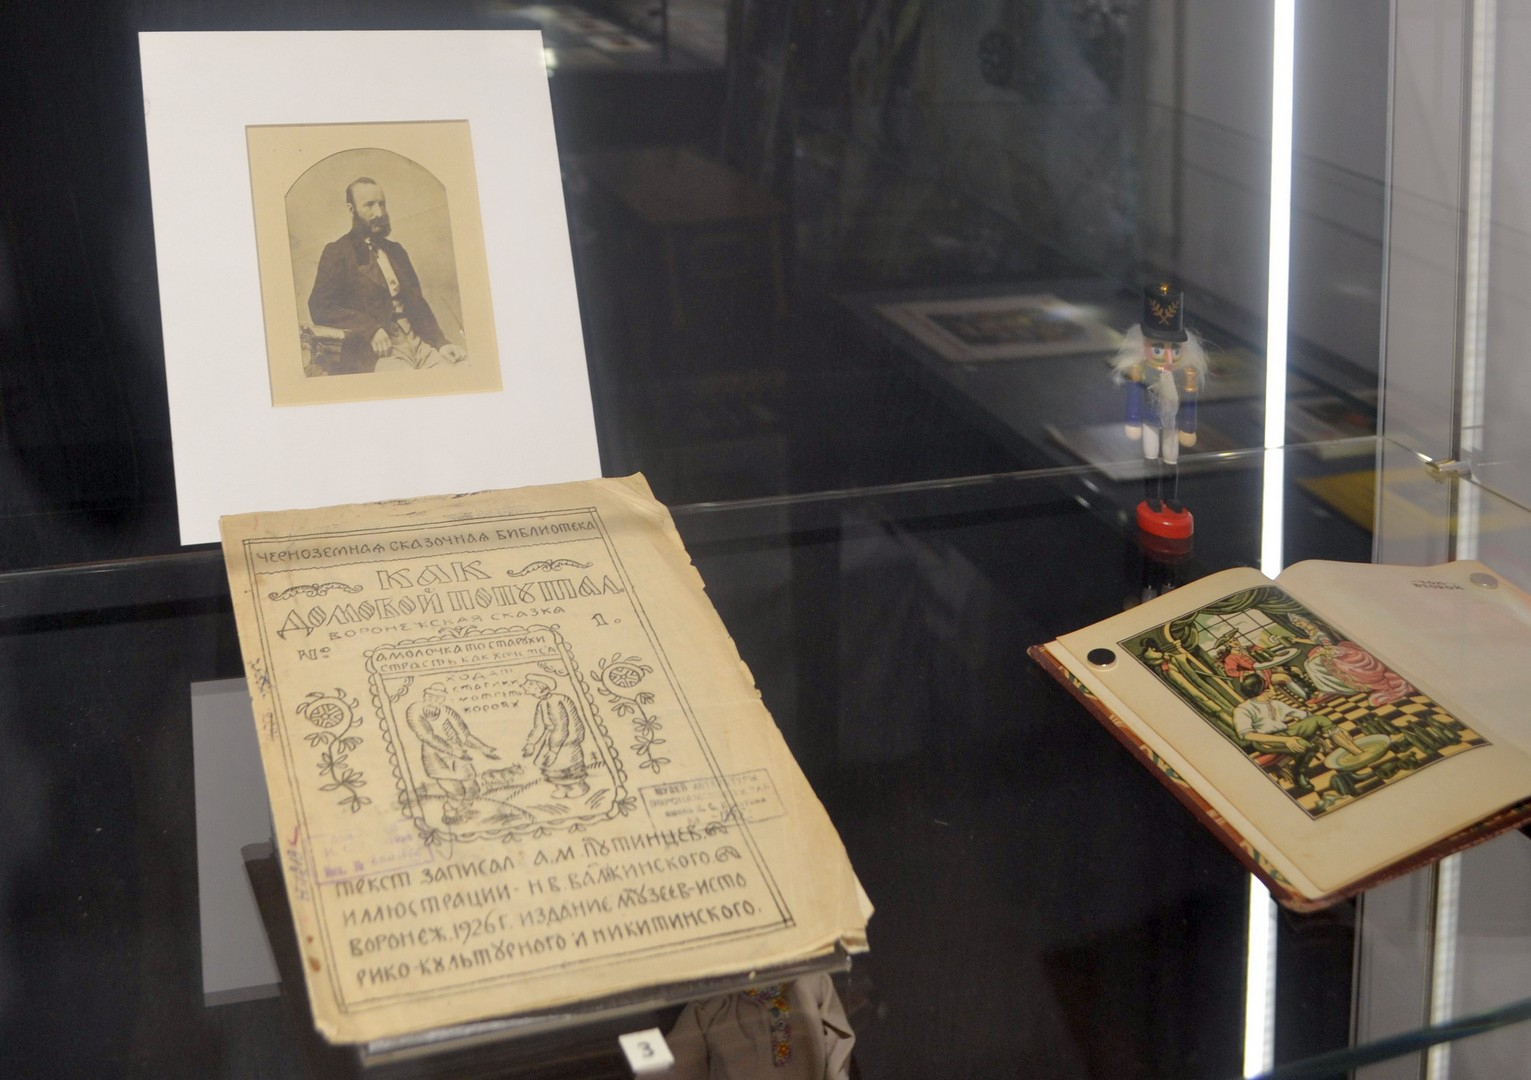 ЧЕРНОЗЕМНАЯ СКАЗОЧНАЯ БИБЛИОТЕКА
КАК
ДОМОВОЙ ПОПУТАЛ.
ВОРОНЕЖСКАЯ СКАЗКА
№ 1.
А МОЛОЧКА ТО СТАРУХИ
СТРАСТЬ КАК
ХОДЯТ
КОРОВУ
МУЗЕЙ
ТЕКСТ ЗАПИСАЛ А.М. ПУТИНЦЕВ.
ИЛЛЮСТРАЦИИ - Н.В. ВАЛЖИНСКОГО
ВОРОНЕЖ. 1926 Г. ИЗДАНИЕ МУЗЕЕВ-ИСТО
РИКО-КУЛЬТУРНОГО И НИКИТИНСКОГО.
3